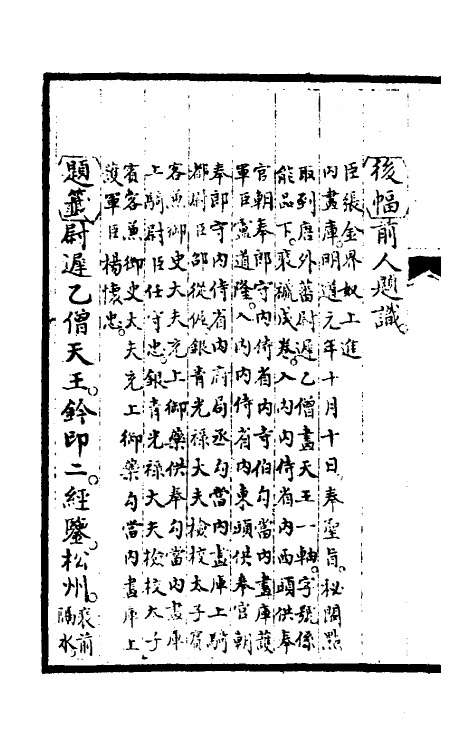 後幅前人題識
臣張金界奴上進
內畫庫明道元年十月十日奉聖旨秘閣點
取到唐外蕃尉遲乙僧畫天王一軸字號係
能品下裹㯏成卷入內內侍省內西頭供奉
官朝奉郎守內侍省內寺伯勾當內畫庫護
軍臣盧道隆入內內侍省內東頭供奉官朝
奉郎守內侍省內府局丞勾當內畫庫上騎
都尉臣邵從偃銀青光祿大夫檢校太子賓
客兼御史大夫充上御藥供奉勾當內畫庫
上騎尉臣任守忠銀青光祿大夫檢校太子
賓客兼御史大夫充上御藥勾當內畫庫上
護軍臣楊懷忠
題籤尉遲乙僧天王鈐印二經鑒松州裹前隔水